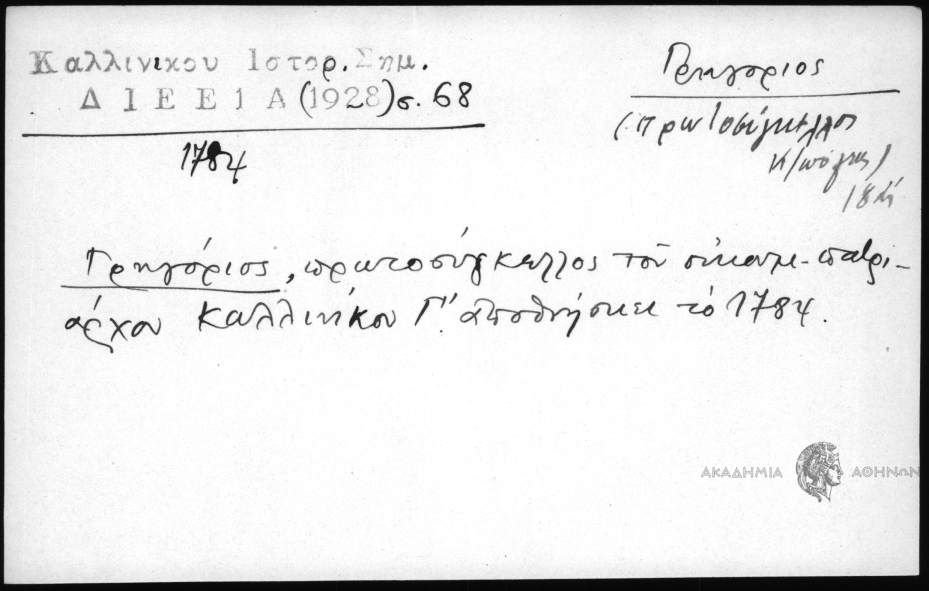 Καλλινικου Ιστορ. Σημ.
ΔΙΕΕ 1Α (1928) σ. 68
1784
Γρηγόριος
(πρωτοσύγκελλος
Κ/πόλεως)
Γρηγόριος, πρωτοσύγκελλος τοῦ οἰκουμ. πατρι-
άρχου Καλλινίκου Γ'. ἀποθνήσκει τὸ 1784.
ΑΚΑΔΗΜΙΑ ΑΘΗΝΩΝ